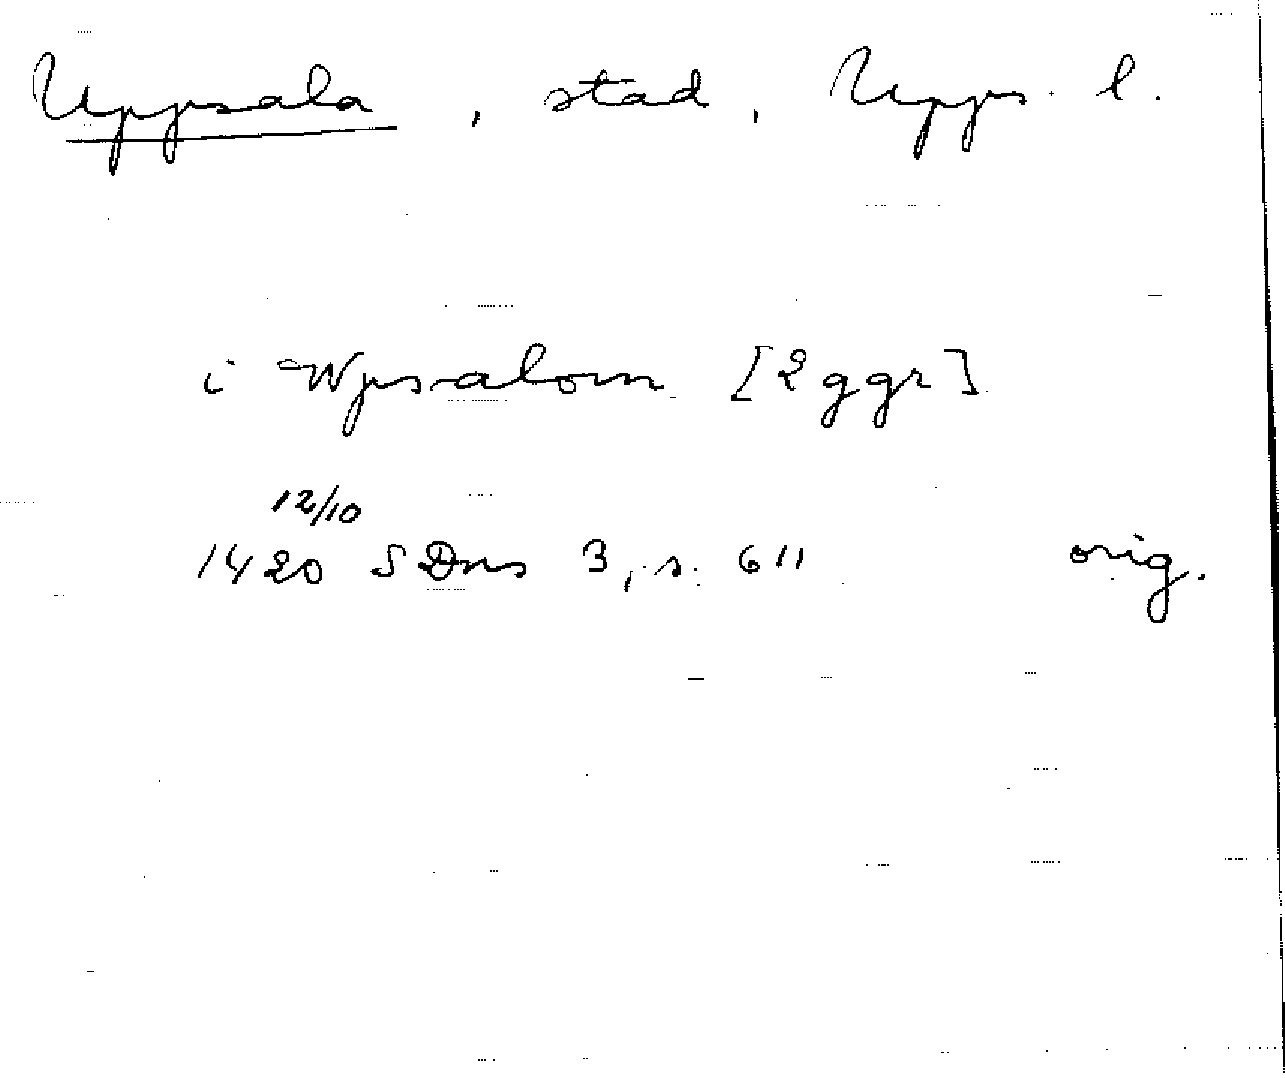 Uppsala, stad, Upps. l.
i Wpsalom [2 ggr]
12/10
1420 SDns 3, s. 611 orig.